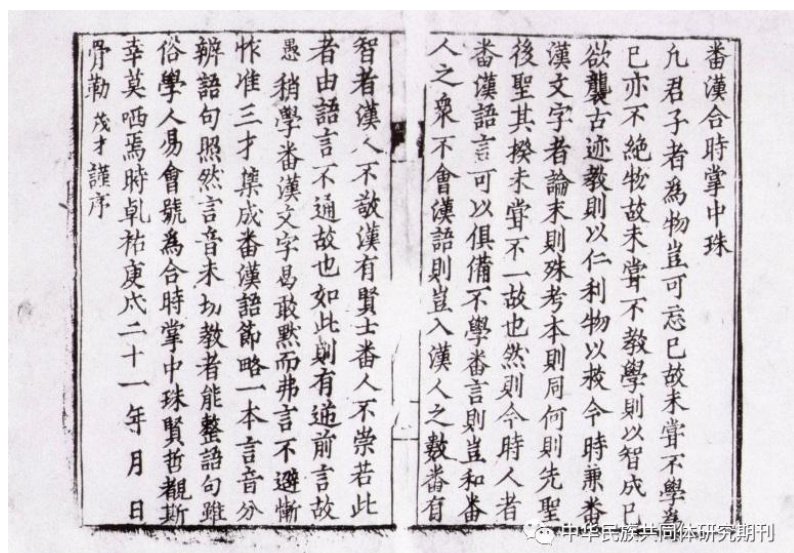 番漢合時掌中珠
凢君子者為物豈可忘已故未甞不學為
已亦不絶物故未甞不教學則以智成已
欲襲古迹教則以仁利物以救今時兼番
漢文字者論末則殊考本則同何則先聖
後聖其揆未甞不一故也然則今時人者
番漢語言可以俱備不學番言則豈和番
人之衆不會漢語則豈入漢人之數番有
智者漢人不敬漢有賢士番人不崇若此
者由語言不通故也如此則有逆前言故
愚稍學番漢文字曷敢默而弗言不避慚
怍准三才集成番漢語節略一本言音分
辨語句照然言音未切教者能整語句雖
俗學人易會號為合時掌中珠賢哲覩斯
幸莫哂焉時乹祐庚戌二十一年月日
骨勒茂才謹序
中华民族共同体研究期刊